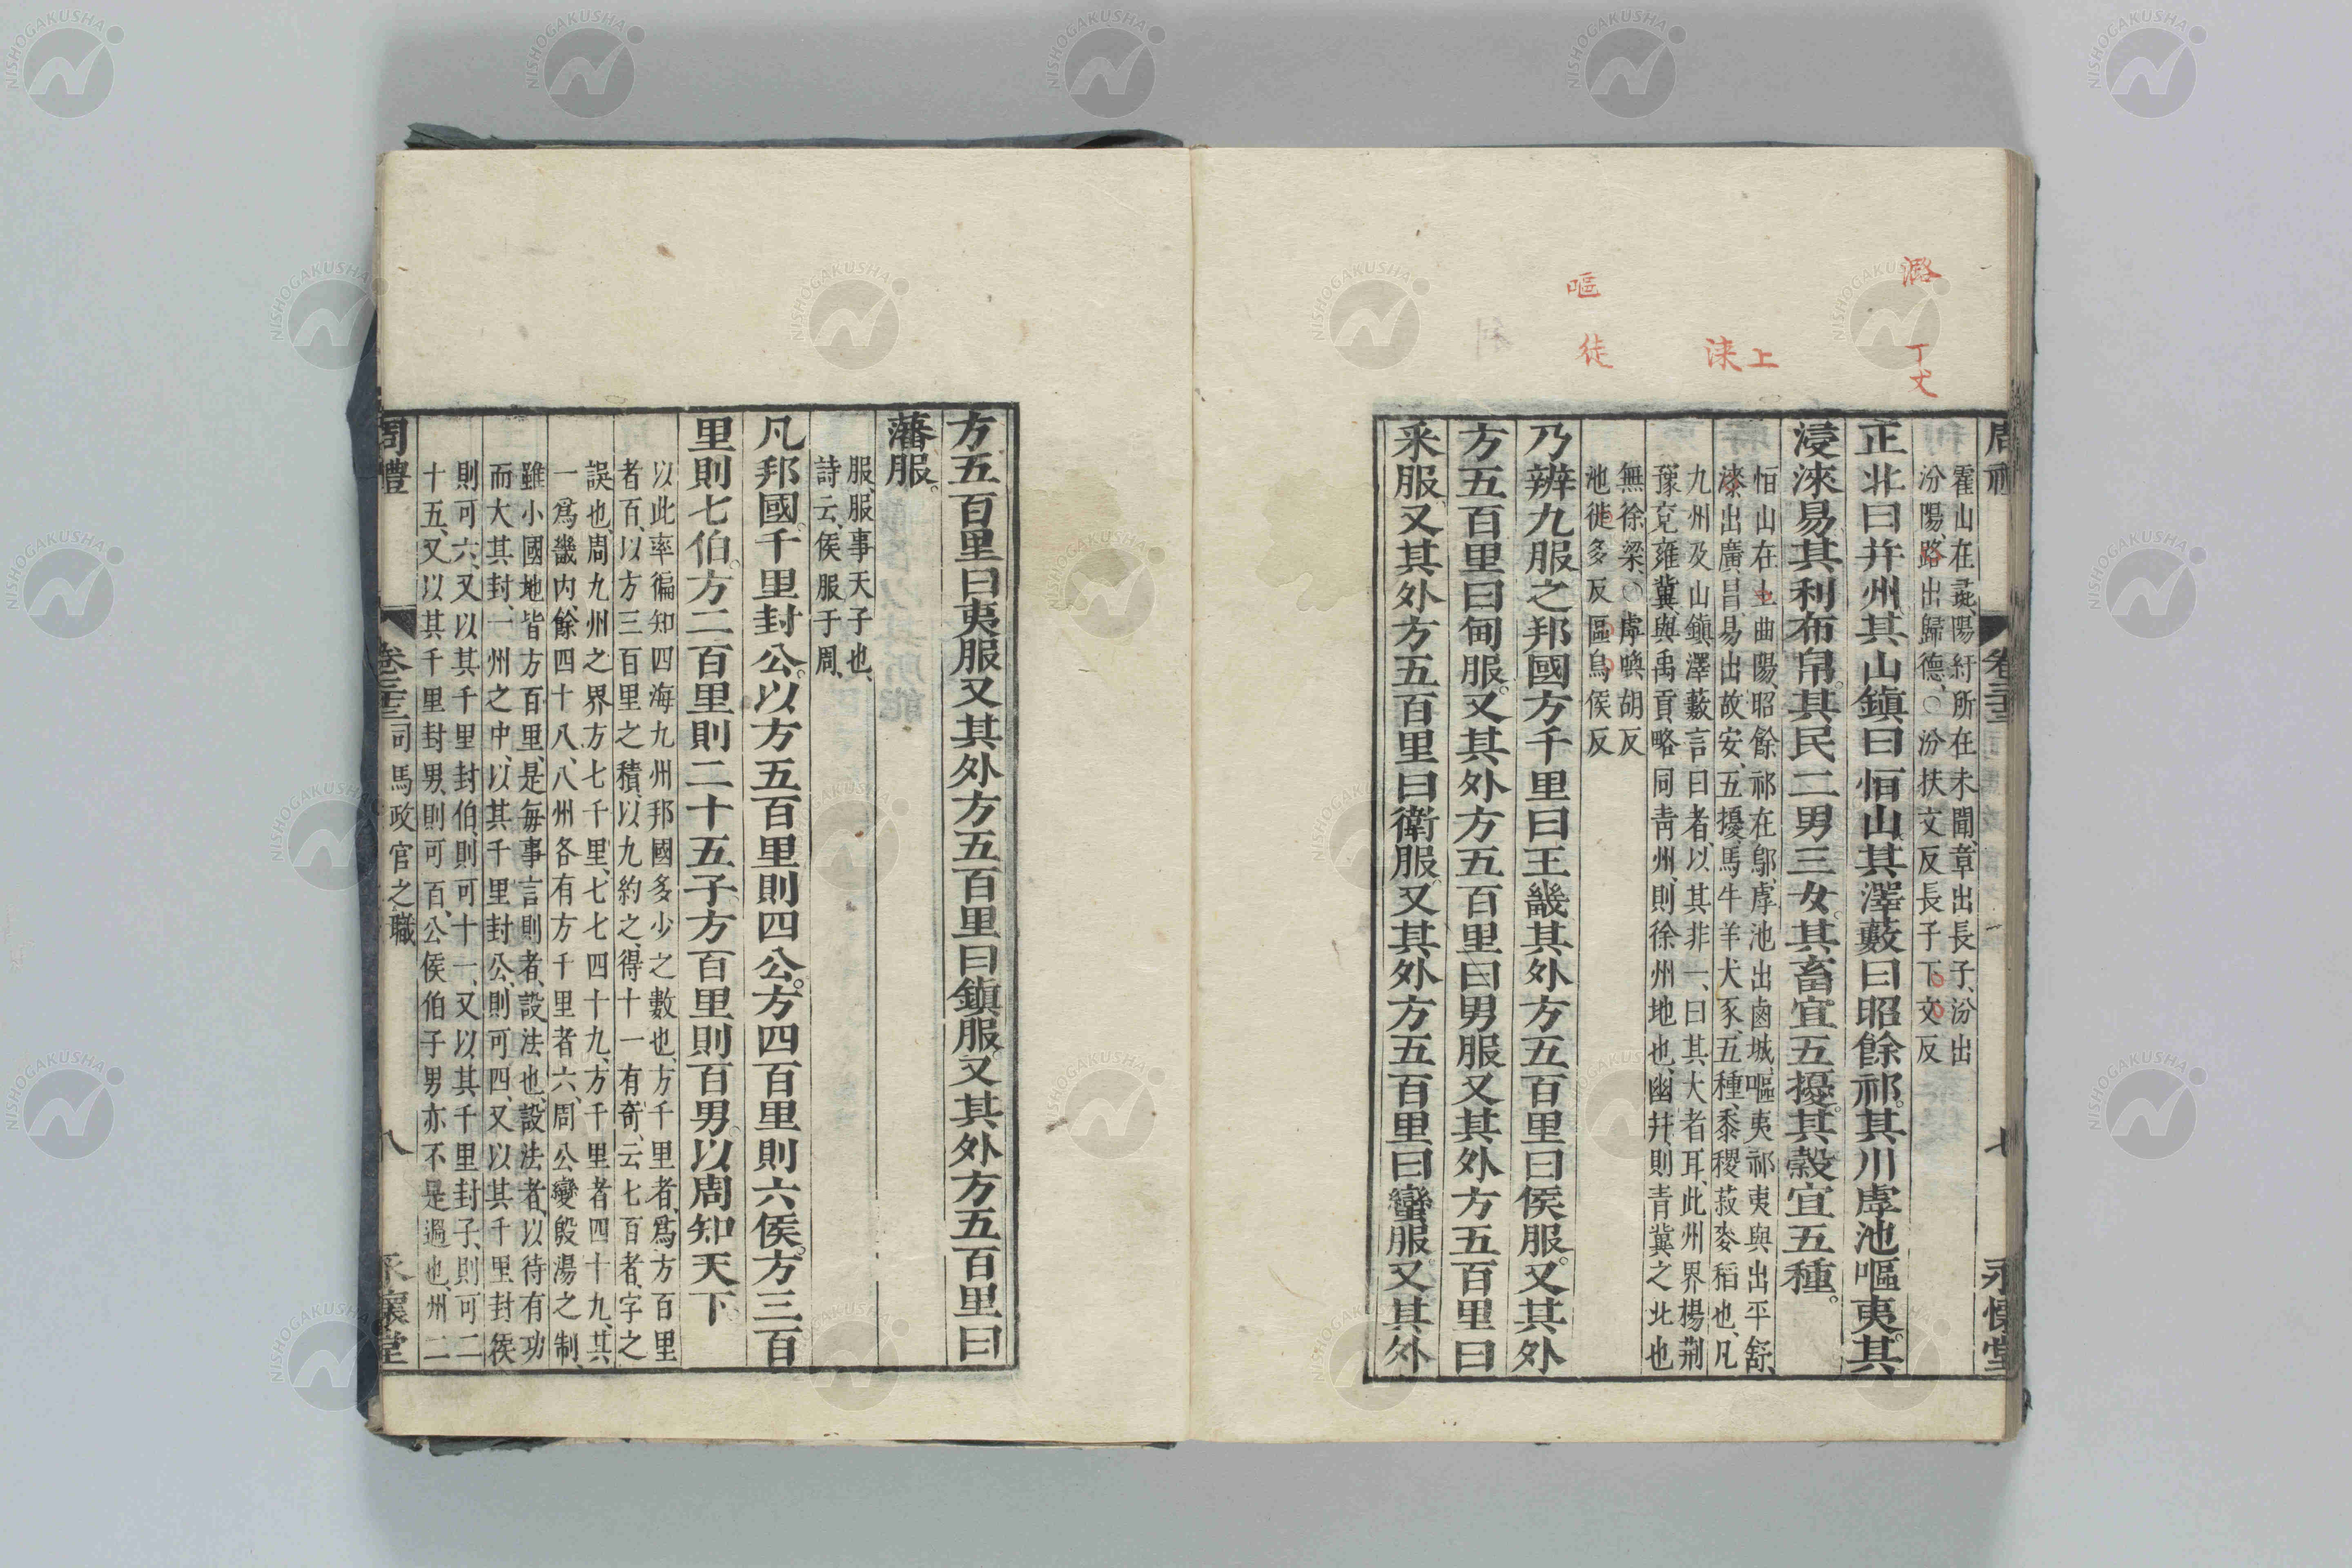 潞
丁丈
上
淶
嘔
徒
周禮
卷三十三
七
永懷堂
霍山在彘陽紆所在未聞章出長子汾出
汾陽路出歸德○汾扶文反長子下丈反
正北曰并州其山鎮曰恒山其澤藪曰昭餘祁其川虖池嘔夷其
浸淶易其利布帛其民二男三女其畜宜五擾其穀宜五種
恒山在上曲陽昭餘祁在鄔虖池出鹵城嘔夷祁夷與出平舒
淶出廣昌易出故安五擾馬牛羊犬豕五種黍稷菽麥稻也凡
九州及山鎮澤藪言曰者以其非一曰其大者耳此州界楊荆
豫兗雍冀與禹貢略同青州則徐州地也幽幷則青冀之北也
無徐梁○虖喚胡反
池徙多反區烏侯反
乃辨九服之邦國方千里曰王畿其外方五百里曰侯服又其外
方五百里曰甸服又其外方五百里曰男服又其外方五百里曰
采服又其外方五百里曰衛服又其外方五百里曰蠻服又其外
方五百里曰夷服又其外方五百里曰鎮服又其外方五百里曰
藩服
服服事天子也
詩云侯服于周
凡邦國千里封公以方五百里則四公方四百里則六侯方三百
里則七伯方二百里則二十五子方百里則百男以周知天下
以此率徧知四海九州邦國多少之數也方千里者爲方百里
者百以方三百里之積以九約之得十一有奇云七百者字之
誤也周九州之界方七千里七七四十九方千里者四十九其
一爲畿內餘四十八八州各有方千里者六周公變殷湯之制
雖小國地皆方百里是每事言則者設法也設法者以待有功
而大其封一州之中以其千里封公則可四又以其千里封侯
則可六又以其千里封伯則可十一又以其千里封子則可二
十五又以其千里封男則可百公侯伯子男亦不是過也州二
周禮
卷三十三
司馬政官之職
八
永懷堂